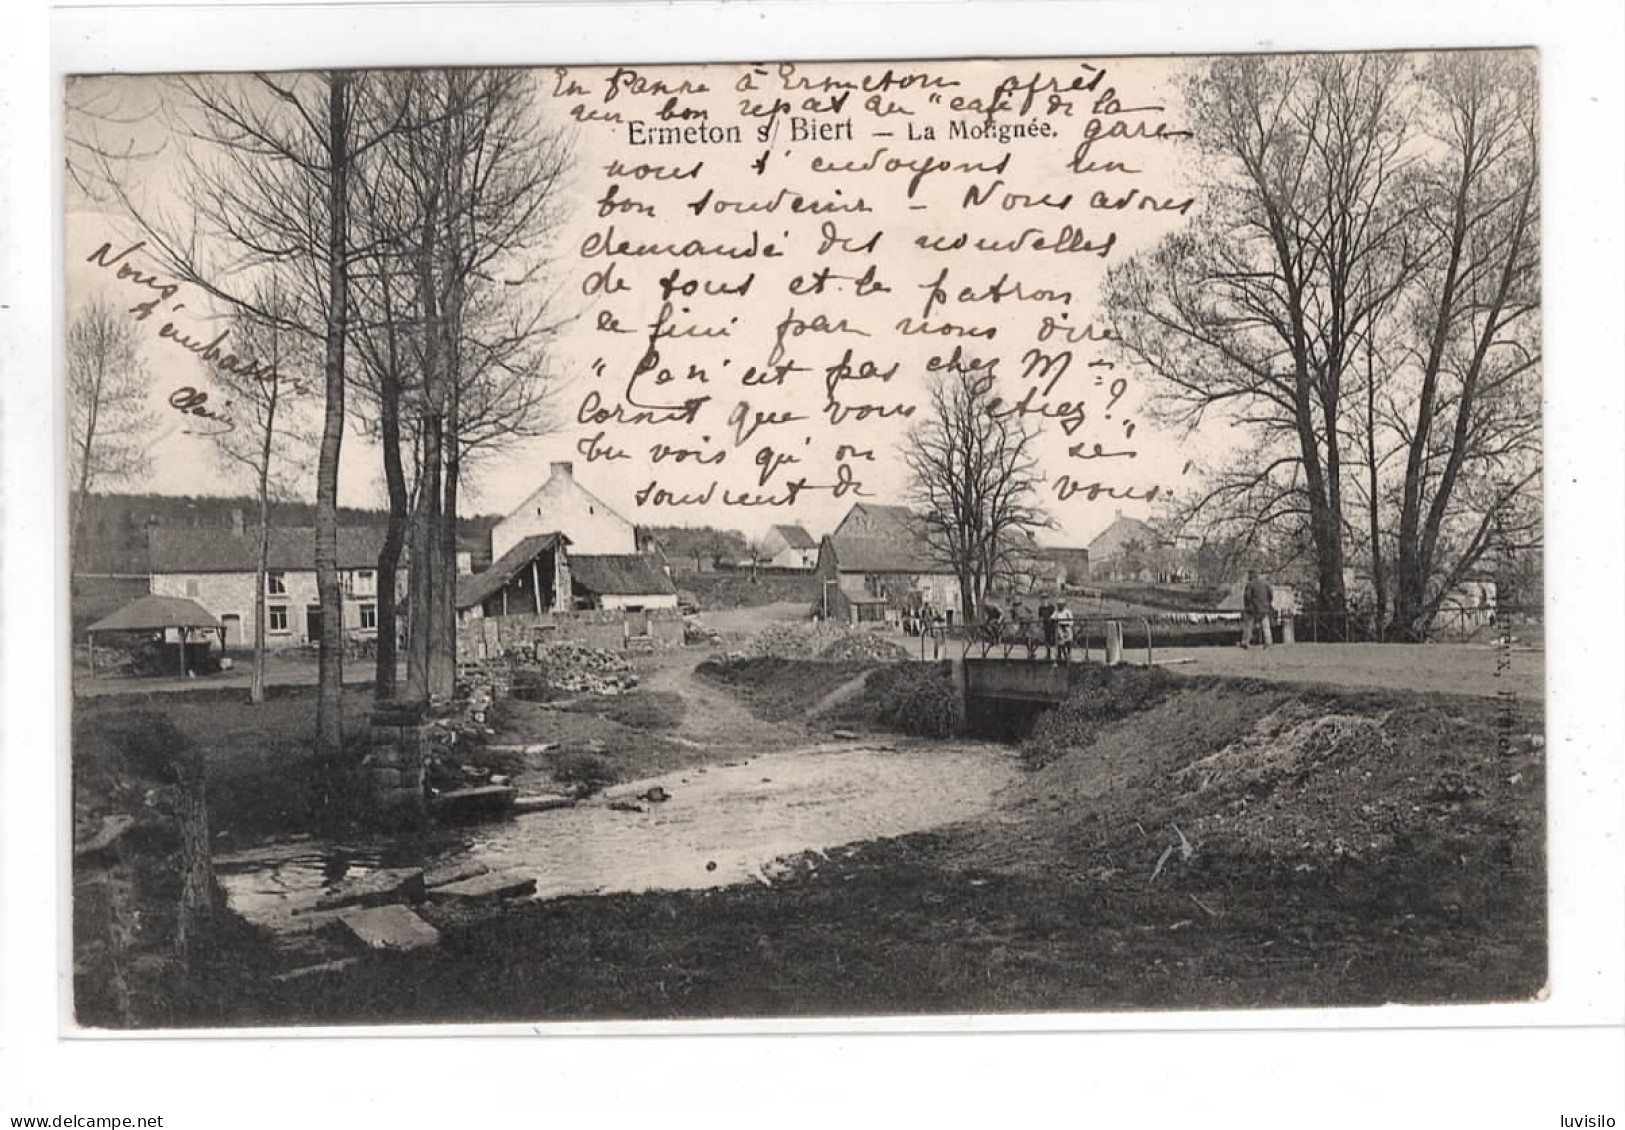 En panne à Ermeton après
un bon repas au "café de la
gare
Ermeton s/ Biert – La Molignée.
nous t'envoyons un
bon souvenir – Nous avons
demandé des nouvelles
de tous et le patron
a fini par nous dire
"Ce n'est pas chez Mme
Cornet que vous étiez?"
Tu vois qu'on se
souvient de vous!
Nous
t'embrassons
Clair
delcampe.net
luvisilo